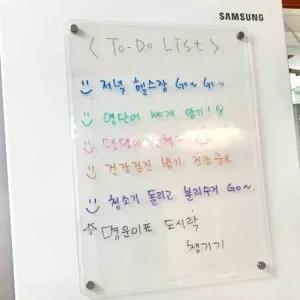 SAMSUNG
< TO-DO LIST >
저녁 헬스장 Go~ Go~
영단어 100개 암기!
댕댕이 산책
건강검진 받기. 건강 중요
청소기 돌리고 분리수거 Go~.
도시락
챙기기